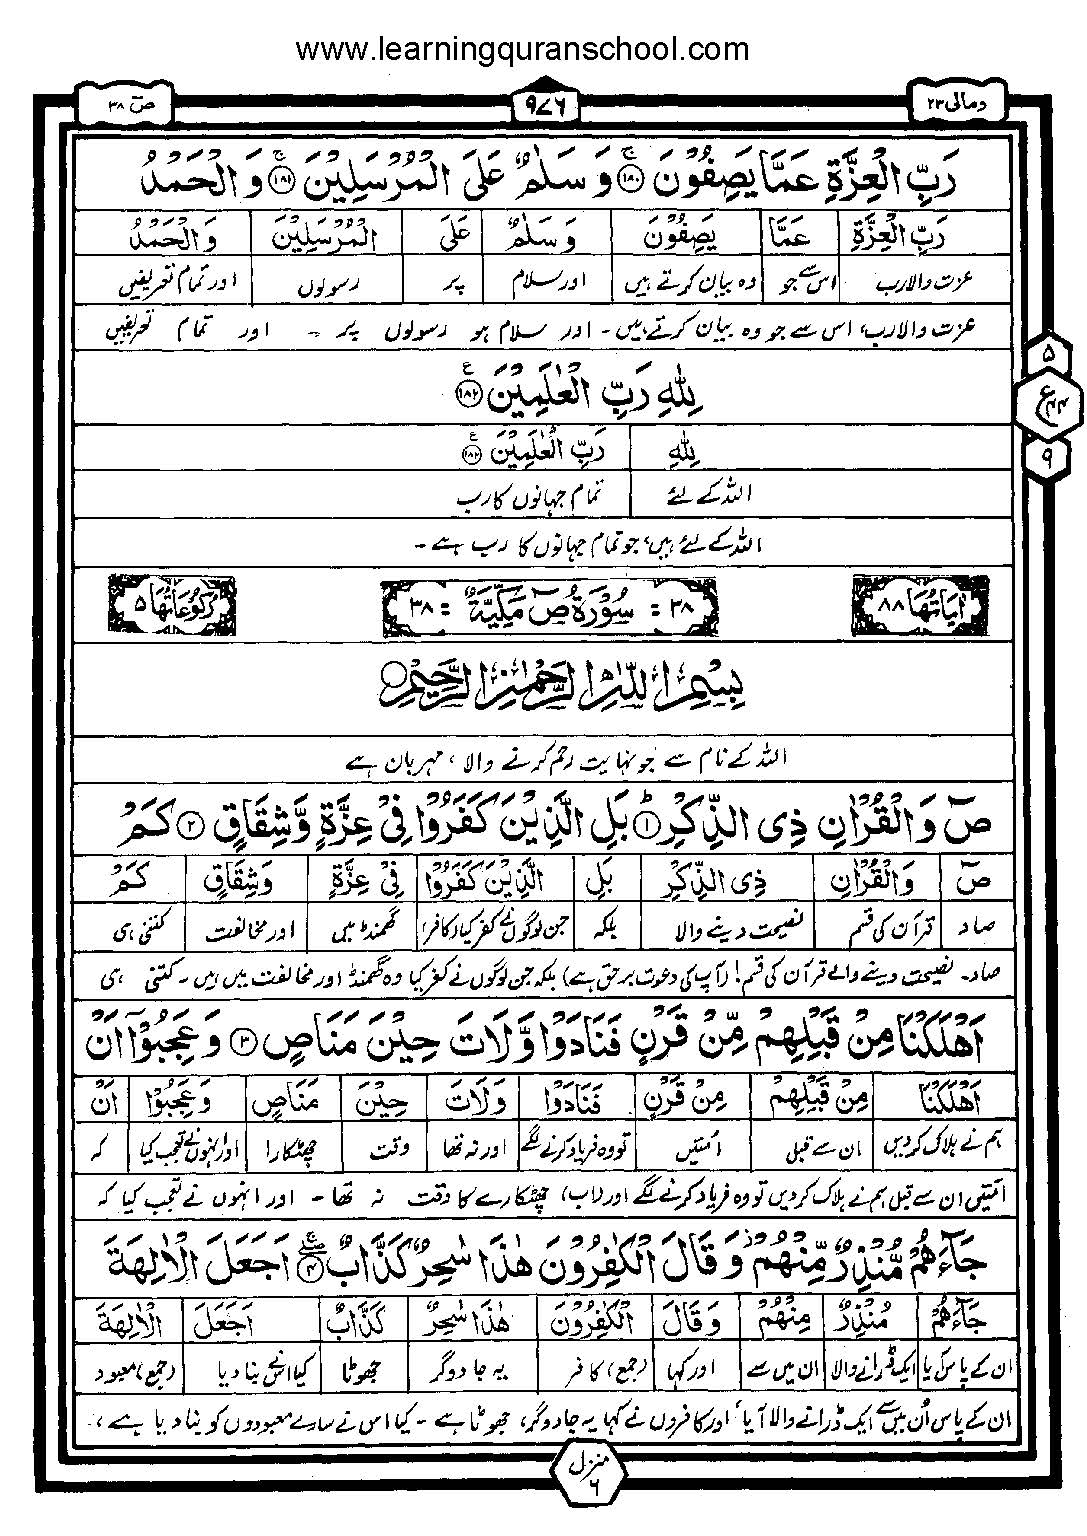 www.learningquranschool.com
ومالی ۲۳
۹۷۶
صٓ ۳۸
رَبِّ الْعِزَّةِ عَمَّا یَصِفُوْنَ ﴿۱۸۰﴾ۚ وَ سَلٰمٌ عَلَی الْمُرْسَلِیْنَ ﴿۱۸۱﴾ۚ وَ الْحَمْدُ
رَبِّ الْعِزَّةِ عَمَّا یَصِفُوْنَ وَ سَلٰمٌ عَلَی الْمُرْسَلِیْنَ وَ الْحَمْدُ
عزت والا رب اس سے جو وہ بیان کرتے ہیں اور سلام پر رسولوں اور تمام تعریفیں
عزت والا رب، اس سے جو وہ بیان کرتے ہیں۔ اور سلام ہو رسولوں پر ۔ اور تمام تعریفیں
۵
لِلّٰهِ رَبِّ الْعٰلَمِیْنَ ﴿۱۸۲﴾ع
ع ۴۴
لِلّٰهِ رَبِّ الْعٰلَمِیْنَ ﴿۱۸۲﴾ع
۹
اللہ کے لئے تمام جہانوں کا رب
اللہ کے لئے ہیں، جو تمام جہانوں کا رب ہے ۔
اٰیَاتُهَا ۸۸
۳۸ = سُوْرَةُ صٓ مَكِّیَّةٌ = ۳۸
رُكُوْعَاتُهَا ۵
بِسْمِ اللّٰهِ الرَّحْمٰنِ الرَّحِیْمِ
اللہ کے نام سے جو نہایت رحم کرنے والا ، مہربان ہے
صٓ وَ الْقُرْاٰنِ ذِی الذِّكْرِ ﴿۱﴾ؕ بَلِ الَّذِیْنَ كَفَرُوْا فِیْ عِزَّةٍ وَّ شِقَاقٍ ﴿۲﴾ كَمْ
صٓ وَ الْقُرْاٰنِ ذِی الذِّكْرِ بَلِ الَّذِیْنَ كَفَرُوْا فِیْ عِزَّةٍ وَ شِقَاقٍ كَمْ
صاد قرآن کی قسم نصیحت دینے والا بلکہ جن لوگوں نے کفر کیا (کافر) گھمنڈ میں اور مخالفت کتنی ہی
صاد۔ نصیحت دینے والے قرآن کی قسم! (آپ کی دعوت برحق ہے) بلکہ جن لوگوں نے کفر کیا وہ گھمنڈ اور مخالفت میں ہیں۔ کتنی ہی
اَهْلَكْنَا مِنْ قَبْلِهِمْ مِّنْ قَرْنٍ فَنَادَوْا وَّ لَاتَ حِیْنَ مَنَاصٍ ﴿۳﴾ وَ عَجِبُوْۤا اَنْ
اَهْلَكْنَا مِنْ قَبْلِهِمْ مِنْ قَرْنٍ فَنَادَوْا وَ لَاتَ حِیْنَ مَنَاصٍ وَ عَجِبُوْا اَنْ
ہم نے ہلاک کردیں ان سے قبل امتیں تو وہ فریاد کرنے لگے اور نہ تھا وقت چھٹکارا اور انہوں نے تعجب کیا کہ
امتیں ان سے قبل ہم نے ہلاک کردیں تو وہ فریاد کرنے لگے اور (اب) چھٹکارے کا وقت نہ تھا ۔ اور انہوں نے تعجب کیا کہ
جَآءَهُمْ مُّنْذِرٌ مِّنْهُمْ ز وَ قَالَ الْكٰفِرُوْنَ هٰذَا سٰحِرٌ كَذَّابٌ ﴿۴﴾ۖۚ اَجَعَلَ الْاٰلِهَةَ
جَآءَهُمْ مُنْذِرٌ مِنْهُمْ وَ قَالَ الْكٰفِرُوْنَ هٰذَا سٰحِرٌ كَذَّابٌ اَجَعَلَ الْاٰلِهَةَ
ان کے پاس آیا ایک ڈرانے والا ان میں سے اور کہا (جمع) کافر یہ جادوگر جھوٹا کیا اس نے بنا دیا (جمع) معبود
ان کے پاس اُن میں سے ایک ڈرانے والا آیا، اور کافروں نے کہا یہ جادوگر، جھوٹا ہے ۔ کیا اس نے سارے معبودوں کو بنا دیا ہے ،
منزل ۶